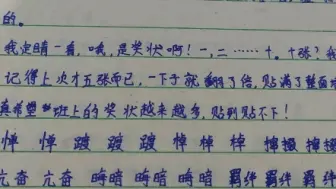 的。
我定睛一看,哦,是奖状啊!一,二……十。十张?我
记得上次才五张而已,一下子就翻了倍,贴满了整面墙
真希望班上的奖状越来越多,贴到贴不下!
惮 惮 踱 踱 踱 棹 棹 棹
亢奋 亢奋 晦暗 晦暗 晦暗 羁绊 羁绊 羁绊